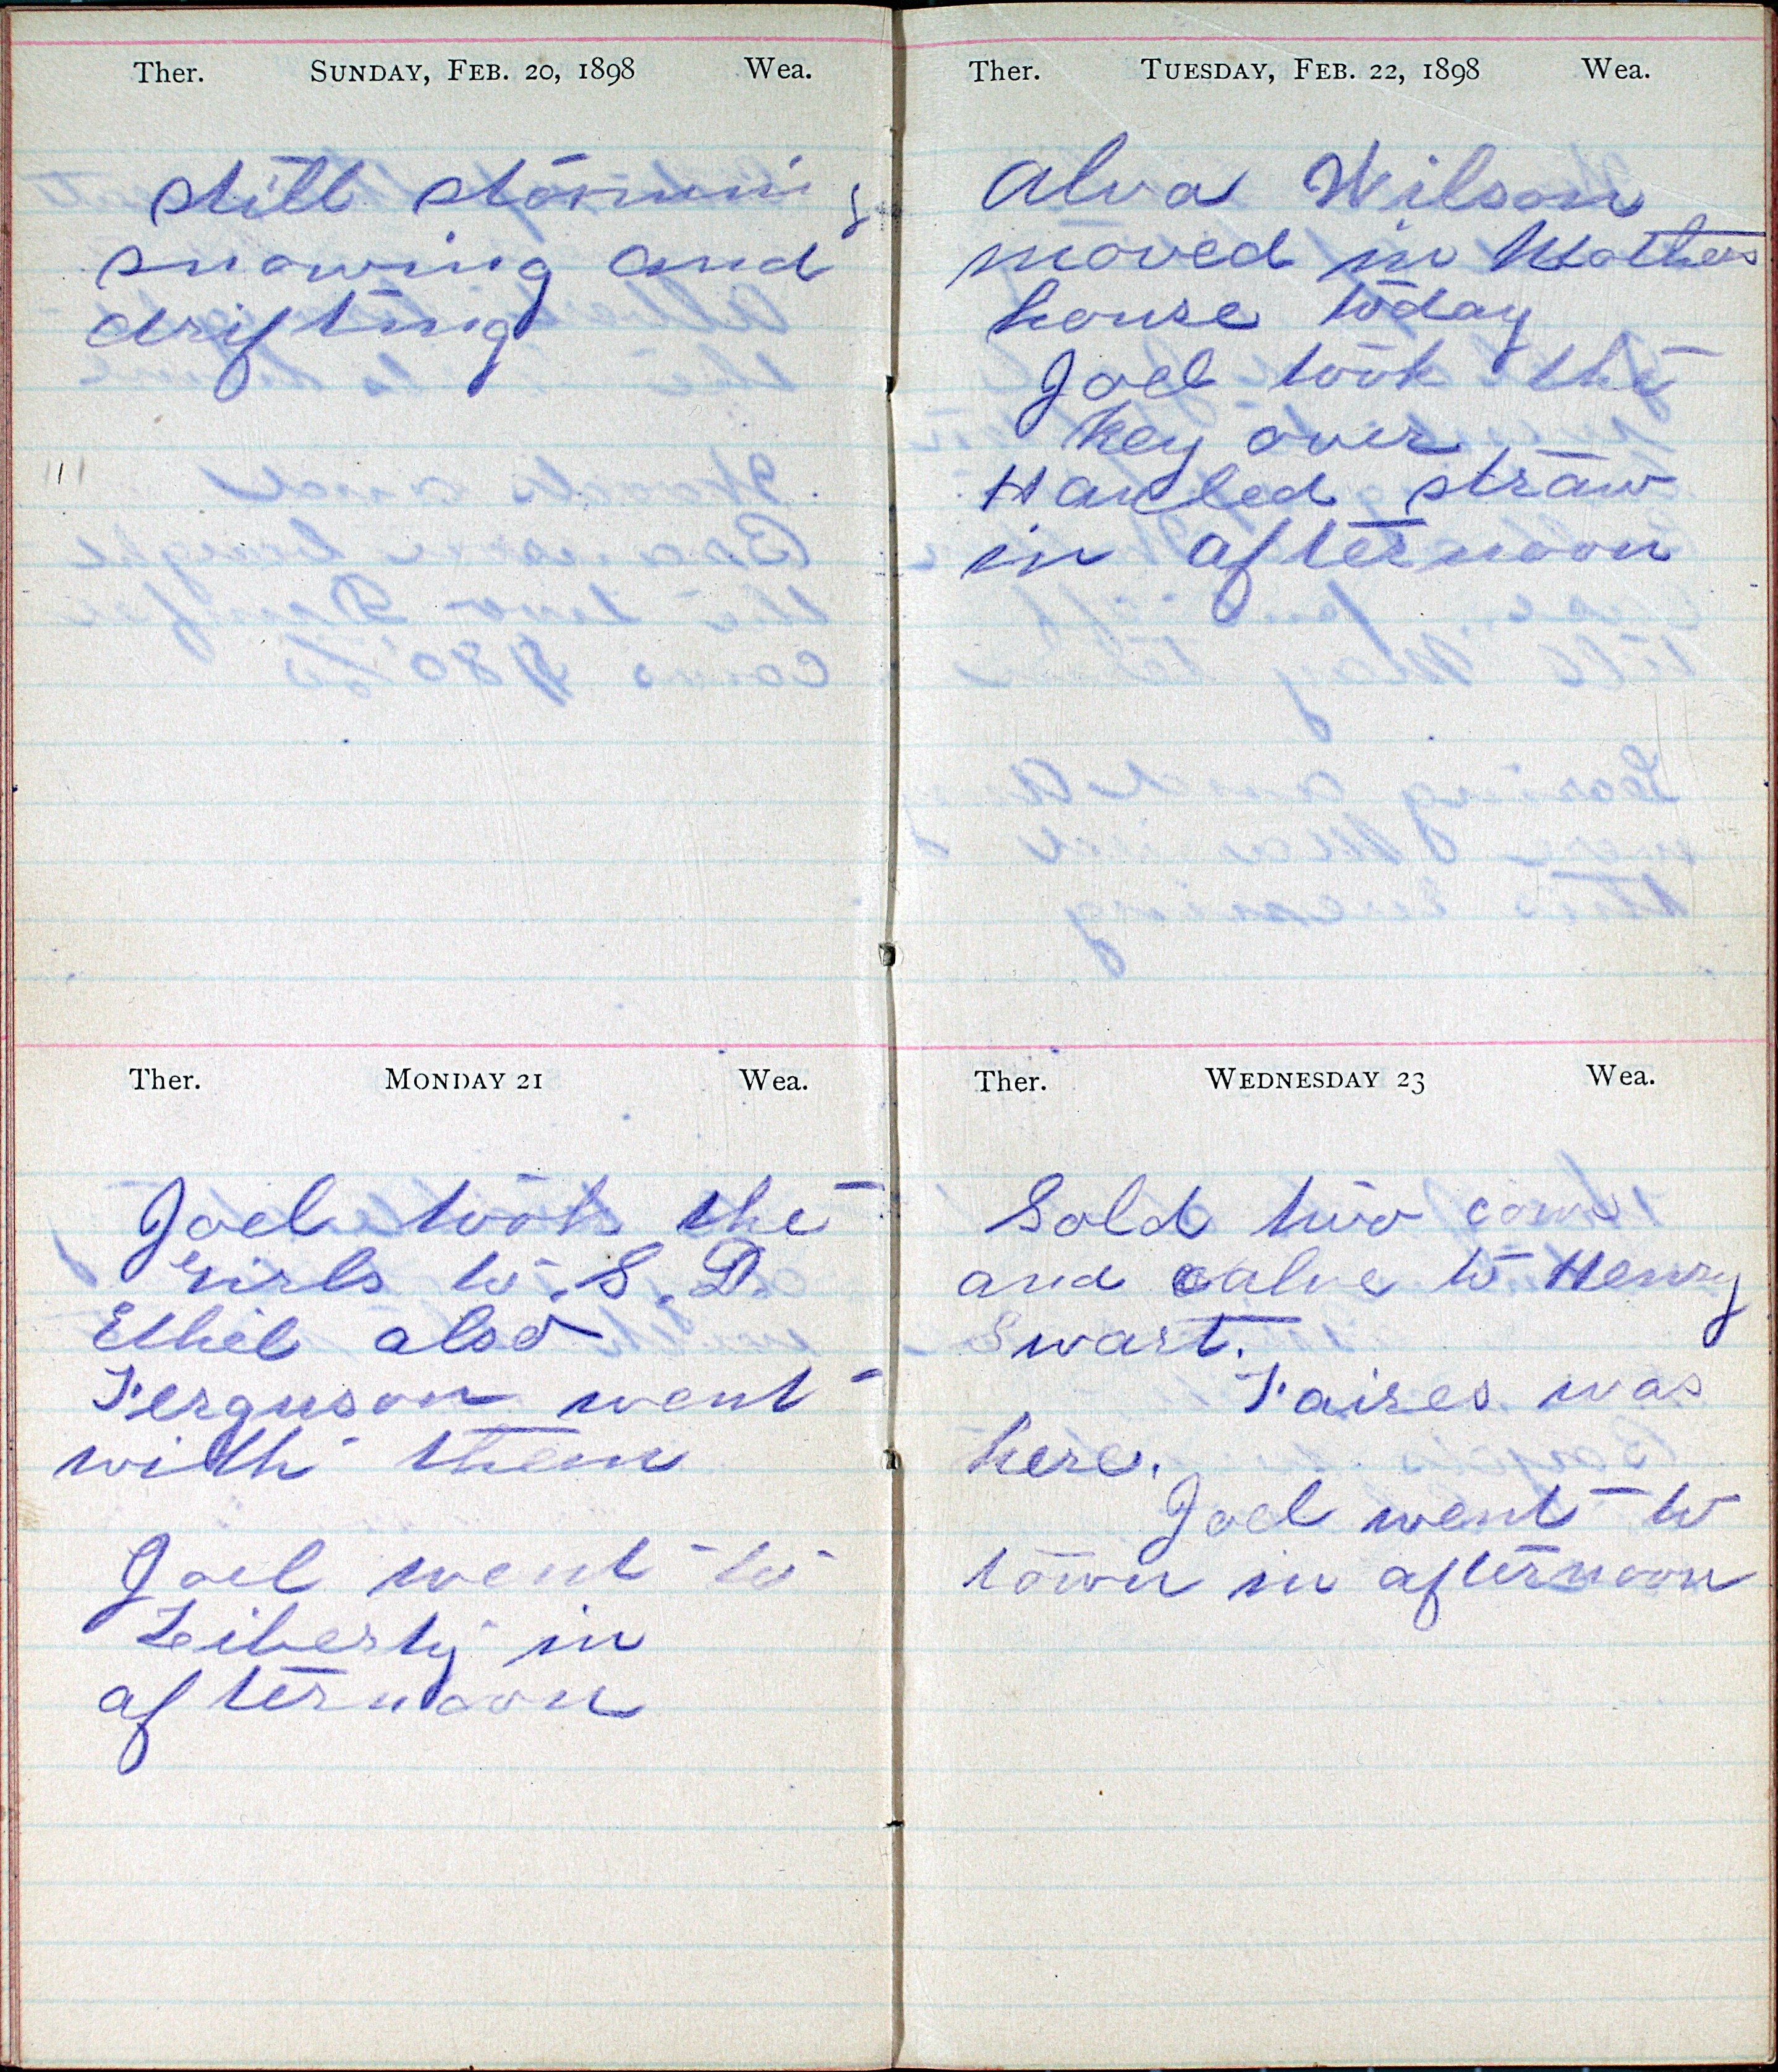 Ther. SUNDAY, FEB. 20, 1898 Wea.
still storming
snowing and
drifting
Ther. MONDAY 21 Wea.
Joel took the
girls to S. D.
Ethel also
Ferguson went
with them
Joel went to
Liberty in
afternoon
Ther. TUESDAY, FEB. 22, 1898 Wea.
Alva Wilson
moved in Mothers
house today
Joel took the
Key over
Hauled straw
in afternoon
Ther. WEDNESDAY 23 Wea.
Sold two cows
and calve to Henry
Swart.
Faires was
here.
Joel went to
town in afternoon